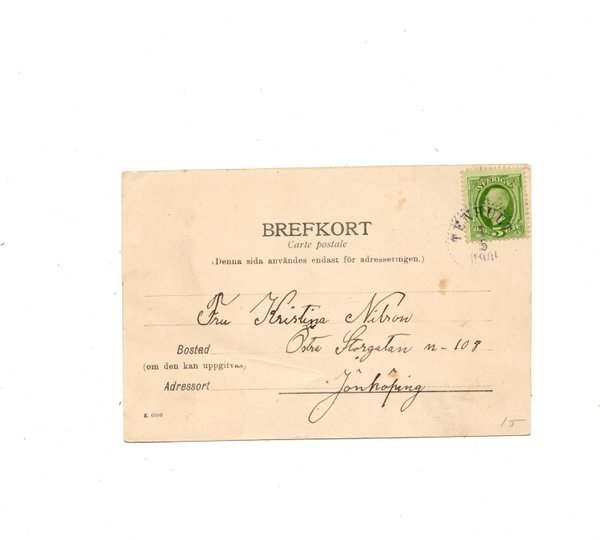 SVERIGE
5
TENHUL
BREFKORT
Carte postale
(Denna sida användes endast för adresseringen.)
Fru Kristina Nilson
Bostad Östra Storgatan n-108
(om den kan uppgifvas)
Adressort Jönköping
15